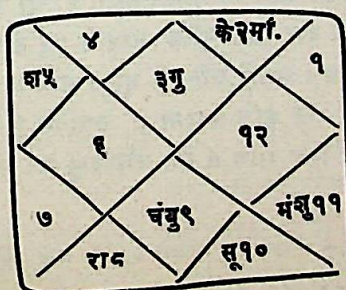 ४ के२मां.
श५ ३गु १
६ १२
७ चंबु९ मंशु११
रा८ सू१०